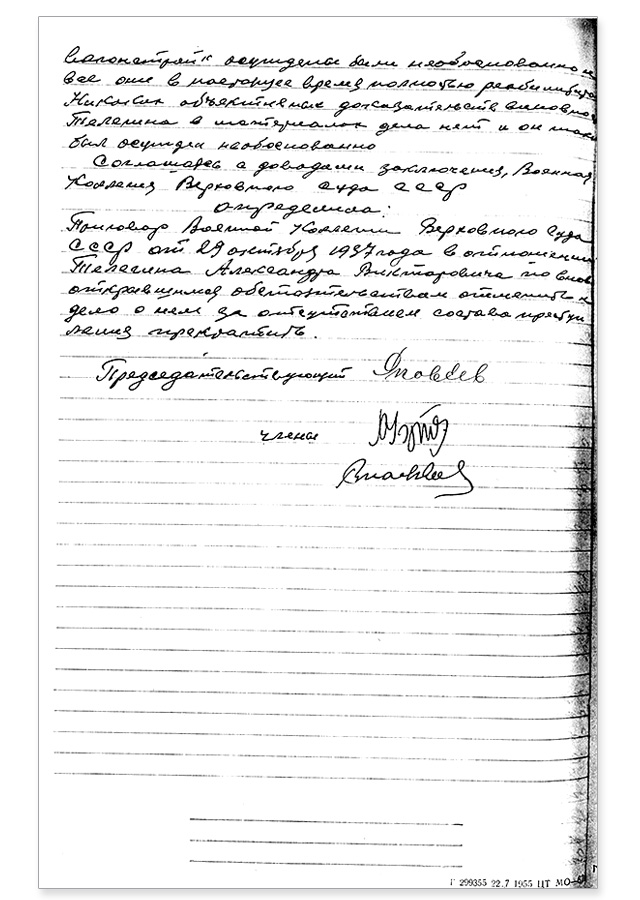 вагонстрой" осуждены были необоснованно и
все они в настоящее время полностью реабилитиро
Никаких объективных доказательств виновнос
Телегина в материалах дела нет и он также
был осужден необоснованно
Соглашаясь с доводами заключения, Военная
Коллегия Верховного Суда СССР
определила:
Приговор Военной Коллегии Верховного Суда
СССР от 29 октября 1937 года в отношении
Телегина Александра Викторовича по вновь
открывшимся обстоятельствам отменить и
дело о нем за отсутствием состава преступ
ления прекратить.
Председательствующий
члены
Г 299355 22.7 1955 ЦТ МО